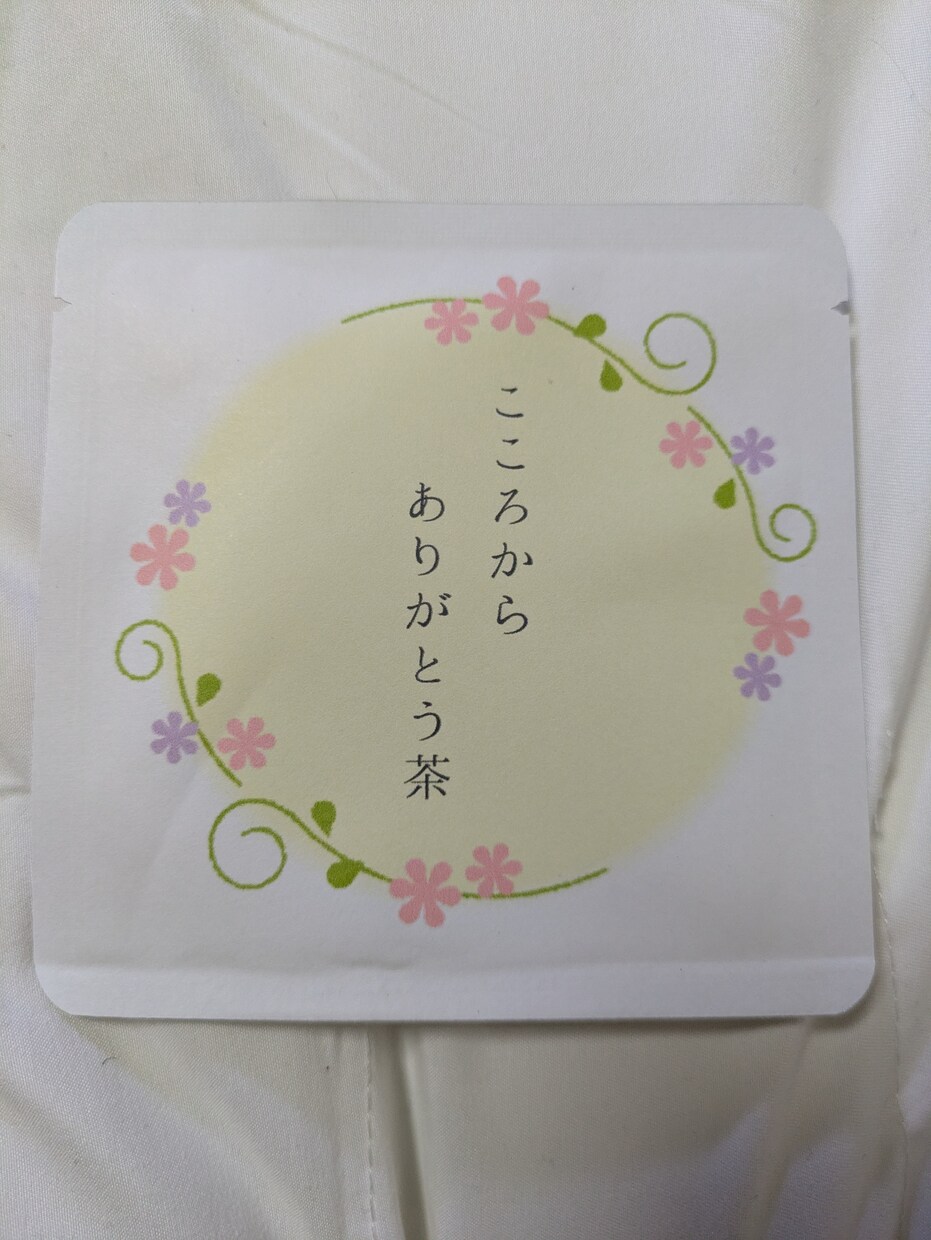 こころから
ありがとう茶